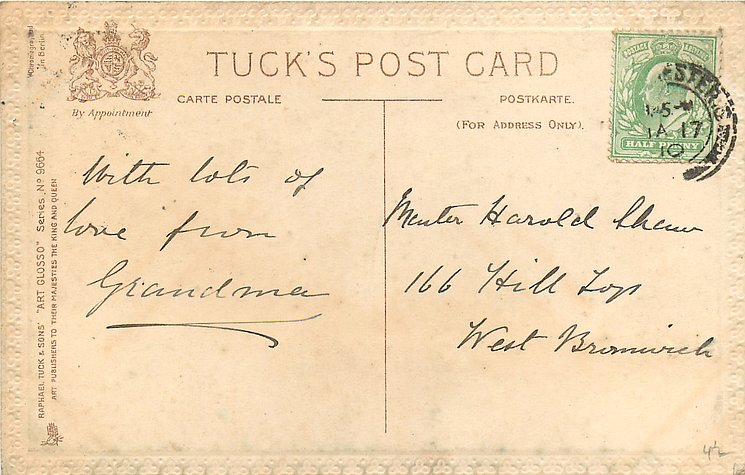 TUCK'S POST CARD
CARTE POSTALE
POSTKARTE.
(FOR ADDRESS ONLY).
By Appointment
in Berlin
RAPHAEL TUCK & SONS' "ART GLOSSO" Series Nº 9664
ART PUBLISHERS TO THEIR MAJESTIES THE KING AND QUEEN
POSTAGE
HALF PENNY
ESTER
JA 17
10
With lots of
love from
Grandma
Master Harold Shaw
166 Hill Top
West Bromwich